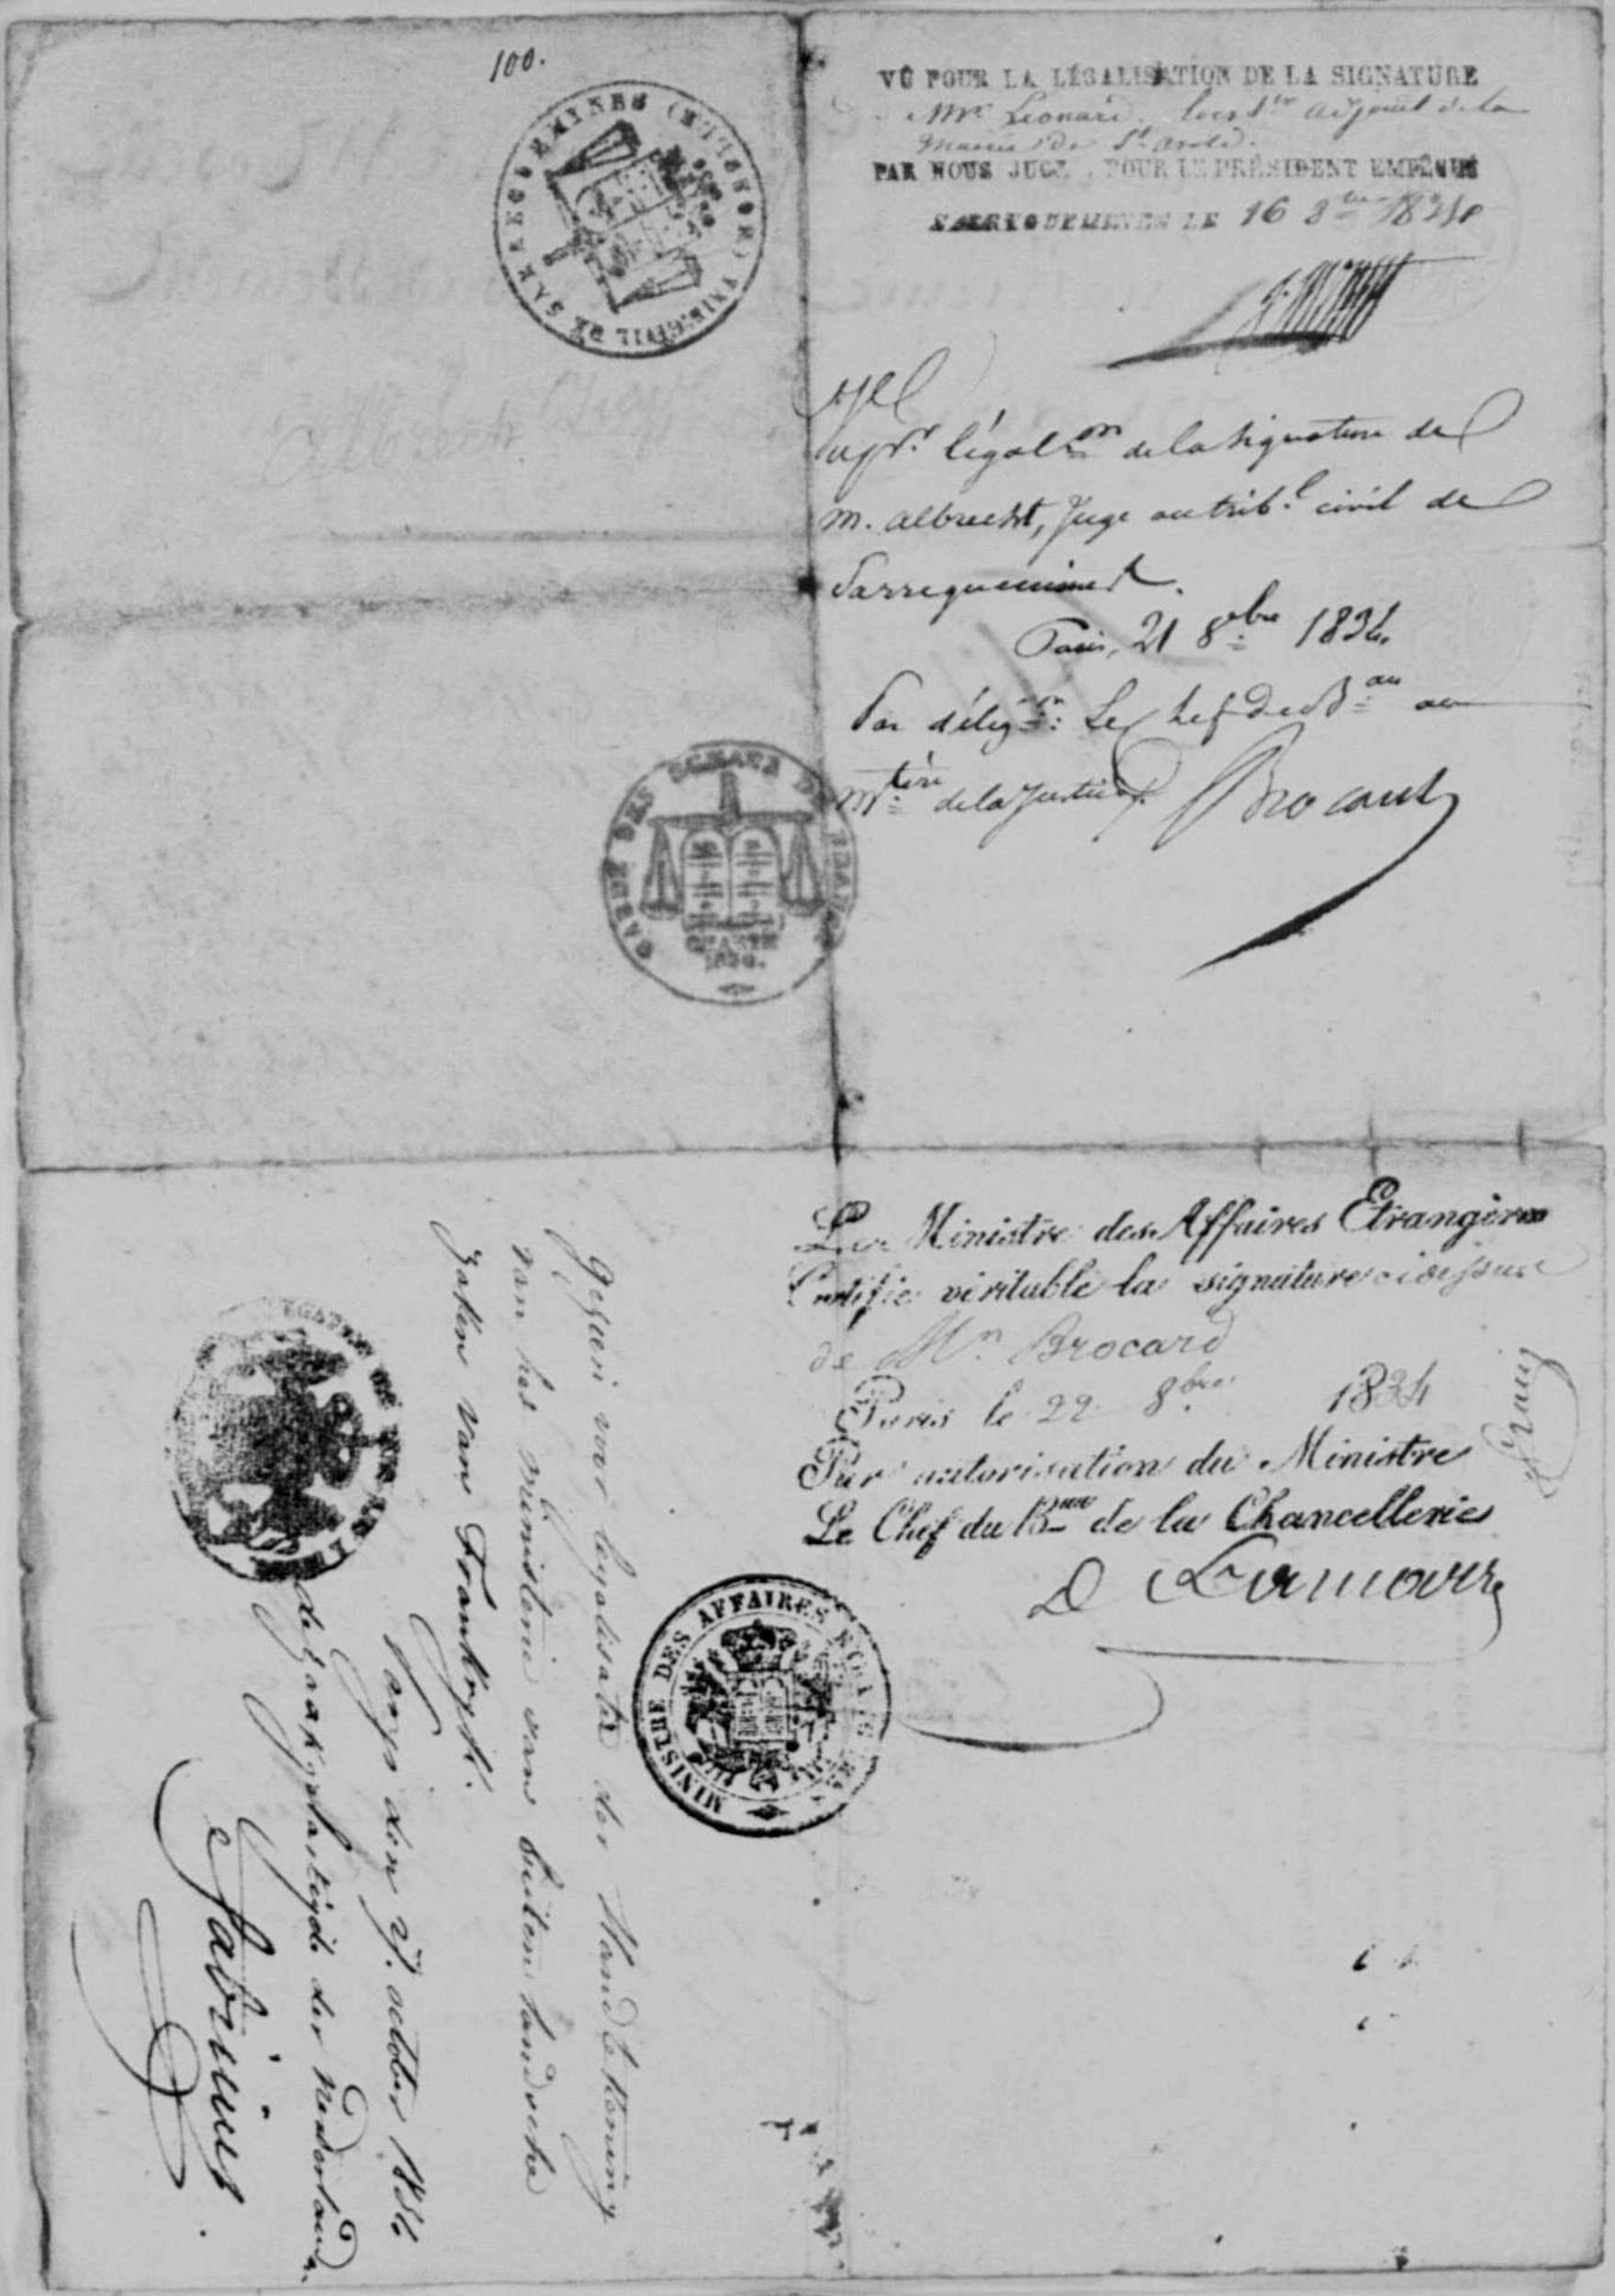 100.
VU POUR LA LÉGALISATION DE LA SIGNATURE
Mr. Leonard, adjoint de la
Mairie de St. avold.
PAR NOUS JUGE, POUR LE PRÉSIDENT EMPÊCHÉ
SARREGUEMINES LE 16 8bre 1834
SARREGUEMINES (MOSELLE) TRIB. CIVIL DE
légalon de la signature de
M. albrecht, Juge au tribl. civil de
Sarreguemines.
Paris, 21 8obre 1834.
Par délégon: Le Chef de Bau au
Mtère de la Justice. Brocard
GARDE DES SCEAUX DE FRANCE
CHARTE
1830.
Le Ministre des Affaires Etrangères
Certifie véritable la signature ci dessus
de Mr. Brocard
Paris le 22 8bre 1834
Par autorisation du Ministre
Le Chef du Bau de la Chancellerie
MINISTRE DES AFFAIRES ETRANGERES
Gezien voor legalisatie der Handtekening
van het ministerie van Buitenlandsche
Zaken van Frankryk.
Parys den 27. october 1834
de Zaakgelastigde der Nederlanden
Fabricius